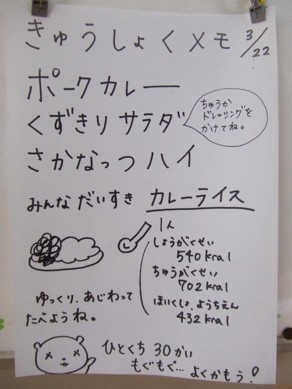 きゅうしょくメモ 3/22
ポークカレー
くずきりサラダ
ちゅうか
ドレッシングを
かけてね。
さかなっつハイ
みんなだいすき カレーライス
1人
しょうがくせい
540kcal
ちゅうがくせい
702kcal
ほいくしょ、ようちえん
432kcal
ゆっくり、あじわって
たべようね。
ひとくち30かい
もぐもぐ…よくかもう!